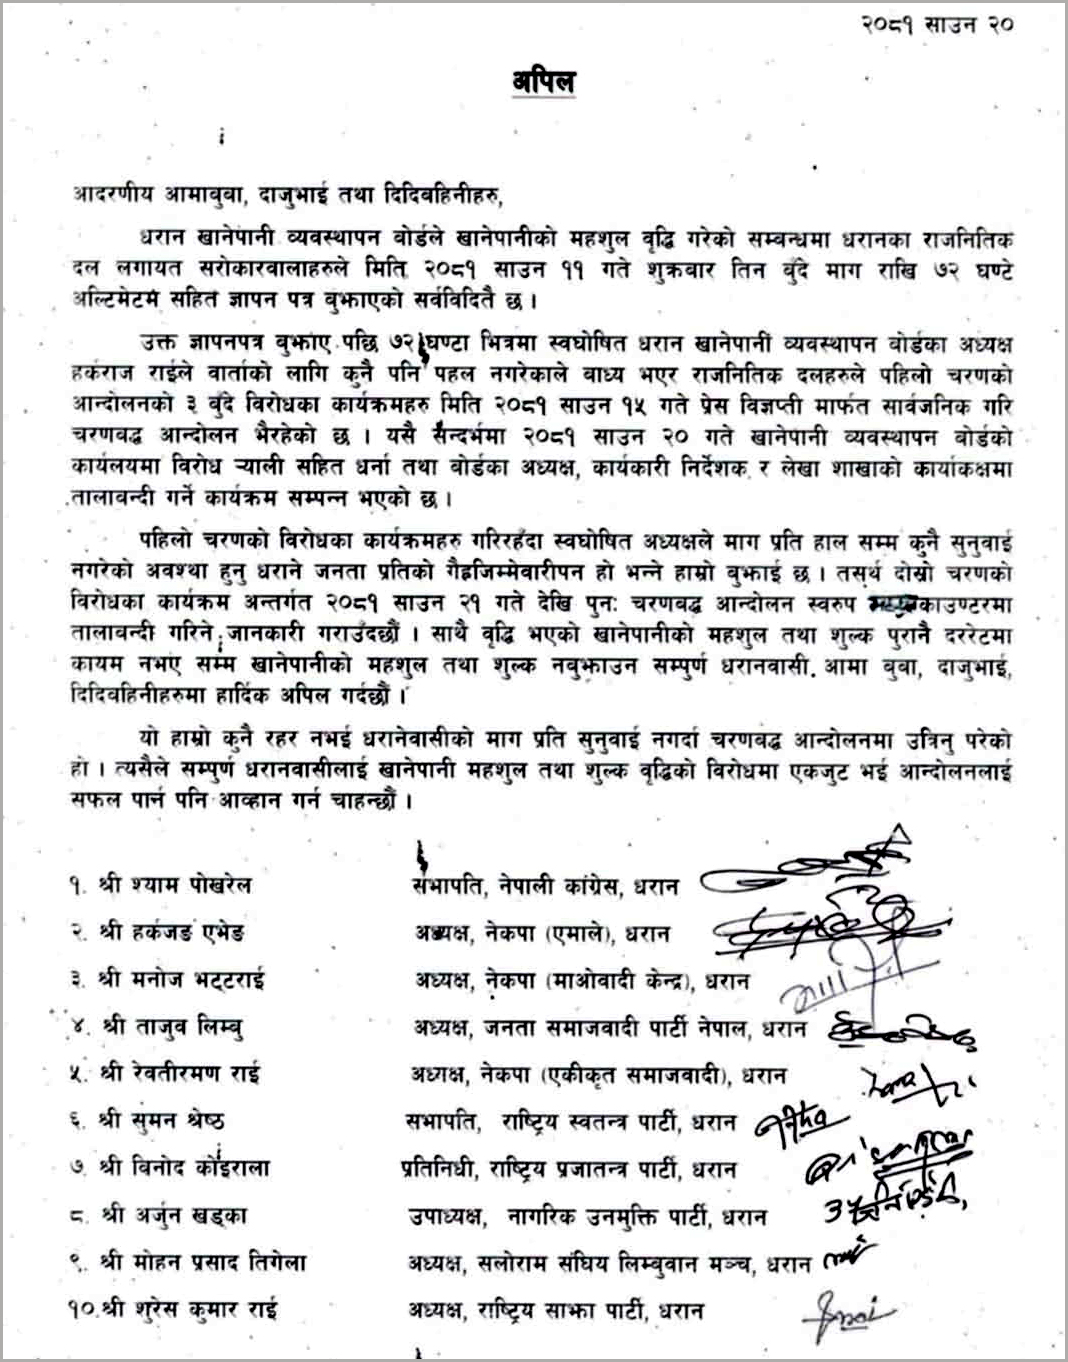 २०८१ साउन २०
अपिल
आदरणीय आमाबुबा, दाजुभाई तथा दिदिवहिनीहरु,
धरान खानेपानी व्यवस्थापन वोर्डले खानेपानीको महशुल वृद्धि गरेको सम्बन्धमा धरानका राजनितिक
दल लगायत सरोकारवालाहरुले मिति २०८१ साउन ११ गते शुक्रबार तिन वुँदे माग राखि ७२ घण्टे
अल्टिमेटम सहित ज्ञापन पत्र वुझाएको सर्वविदितै छ ।
उक्त ज्ञापनपत्र वुझाए पछि ७२ घण्टा भित्रमा स्वघोषित धरान खानेपानी व्यवस्थापन वोर्डका अध्यक्ष
हर्कराज राईले वार्ताको लागि कुनै पनि पहल नगरेकाले वाध्य भएर राजनितिक दलहरुले पहिलो चरणको
आन्दोलनको ३ वुँदे विरोधका कार्यक्रमहरु मिति २०८१ साउन १५ गते प्रेस विज्ञप्ती मार्फत सार्वजनिक गरि
चरणबद्ध आन्दोलन भैरहेको छ । यसै सन्दर्भमा २०८१ साउन २० गते खानेपानी व्यवस्थापन वोर्डको
कार्यलयमा विरोध ऱ्याली सहित धर्ना तथा वोर्डका अध्यक्ष, कार्यकारी निर्देशक र लेखा शाखाको कार्याकक्षमा
तालाबन्दी गर्ने कार्यक्रम सम्पन्न भएको छ ।
पहिलो चरणको विरोधका कार्यक्रमहरु गरिरहँदा स्वघोषित अध्यक्षले माग प्रति हाल सम्म कुनै सुनुवाई
नगरेको अवश्था हुनु धराने जनता प्रतिको गैह्रजिम्मेवारीपन हो भन्ने हाम्रो वुझाई छ । तसर्थ दोस्रो चरणको
विरोधका कार्यक्रम अन्तर्गत २०८१ साउन २१ गते देखि पुनः चरणबद्ध आन्दोलन स्वरुप काउण्टरमा
तालाबन्दी गरिने जानकारी गराउँदछौं । साथै वृद्धि भएको खानेपानीको महशुल तथा शुल्क पुरानै दररेटमा
कायम नभए सम्म खानेपानीको महशुल तथा शुल्क नबुझाउन सम्पुर्ण धरानवासी आमा वुबा, दाजुभाई,
दिदिवहिनीहरुमा हार्दिक अपिल गर्दछौं ।
यो हाम्रो कुनै रहर नभई धरानेवासीको माग प्रति सुनुवाई नगर्दा चरणबद्ध आन्दोलनमा उत्रिनु परेको
हो । त्यसैले सम्पुर्ण धरानवासीलाई खानेपानी महशुल तथा शुल्क वृद्धिको विरोधमा एकजुट भई आन्दोलनलाई
सफल पार्न पनि आव्हान गर्न चाहन्छौं ।
१. श्री श्याम पोखरेल सभापति, नेपाली कांग्रेस, धरान
२. श्री हर्कजङ एभेङ अध्यक्ष, नेकपा (एमाले), धरान
३. श्री मनोज भट्टराई अध्यक्ष, नेकपा (माओवादी केन्द्र), धरान
४. श्री ताजुव लिम्बु अध्यक्ष, जनता समाजवादी पार्टी नेपाल, धरान
५. श्री रेवतीरमण राई अध्यक्ष, नेकपा (एकीकृत समाजवादी), धरान
६. श्री सुमन श्रेष्ठ सभापति, राष्ट्रिय स्वतन्त्र पार्टी, धरान
७. श्री विनोद कोईराला प्रतिनिधी, राष्ट्रिय प्रजातन्त्र पार्टी, धरान
८. श्री अर्जुन खड्का उपाध्यक्ष, नागरिक उनमुक्ति पार्टी, धरान
९. श्री मोहन प्रसाद तिगेला अध्यक्ष, सलोराम संघिय लिम्बुवान मञ्च, धरान
१०. श्री शुरेस कुमार राई अध्यक्ष, राष्ट्रिय साझा पार्टी, धरान